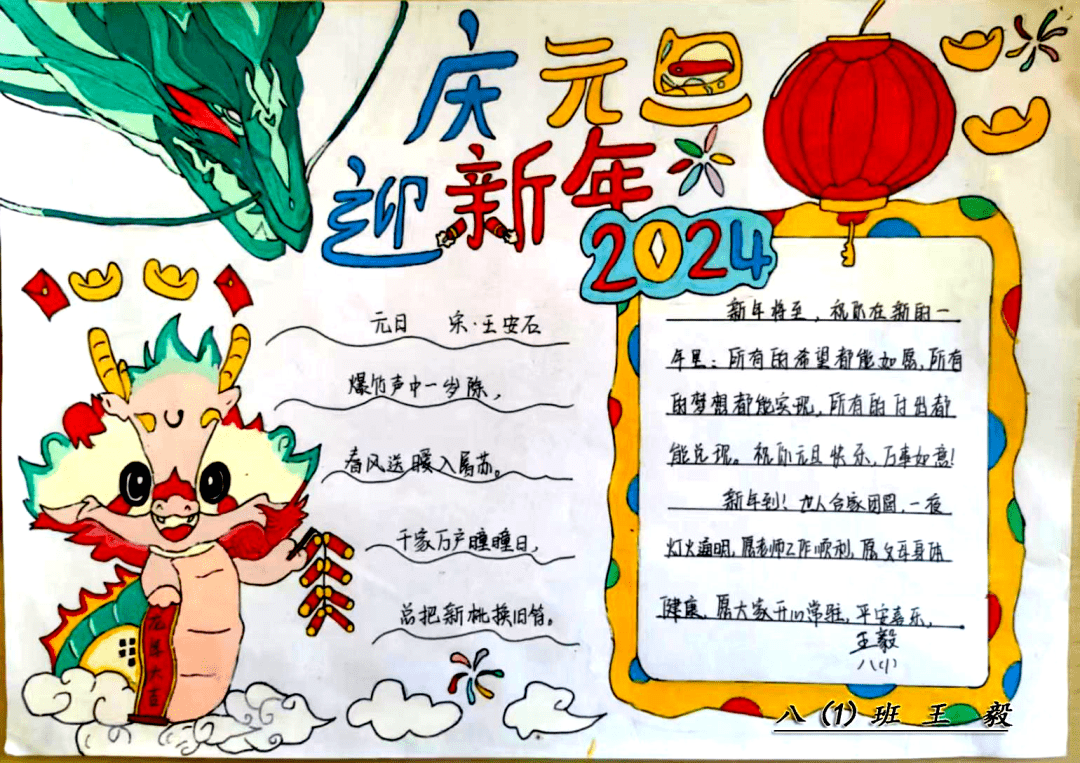 庆元旦
迎新年
2024
元日 宋·王安石
爆竹声中一岁除，
春风送暖入屠苏。
千家万户瞳瞳日，
总把新桃换旧符。
新年将至，祝你在新的一
年里：所有的希望都能如愿，所有
的梦想都能实现，所有的付出都
能兑现。祝你元旦快乐，万事如意！
新年到！世人合家团圆，一夜
灯火通明，愿老师工作顺利，愿父母身体
健康，愿大家开心常驻，平安喜乐，
王毅
八(1)
龙大吉
八 (1) 班 王 毅